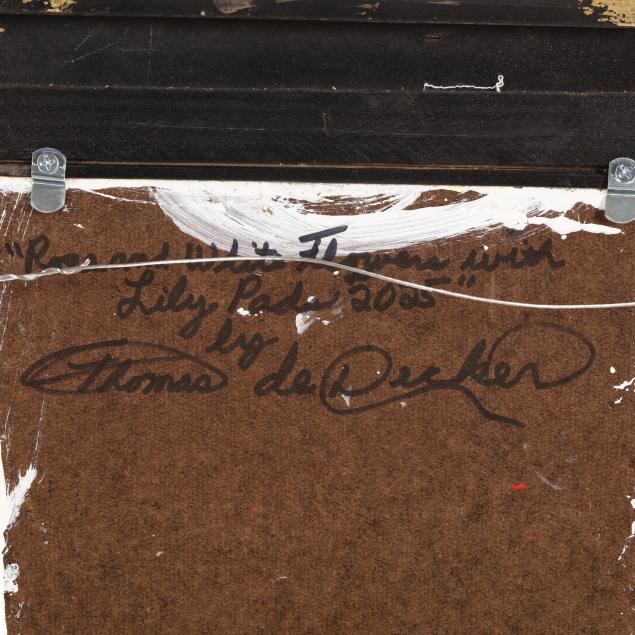 "Rose and White Flowers with
Lily Pads 2025"
by
Thomas deDecker